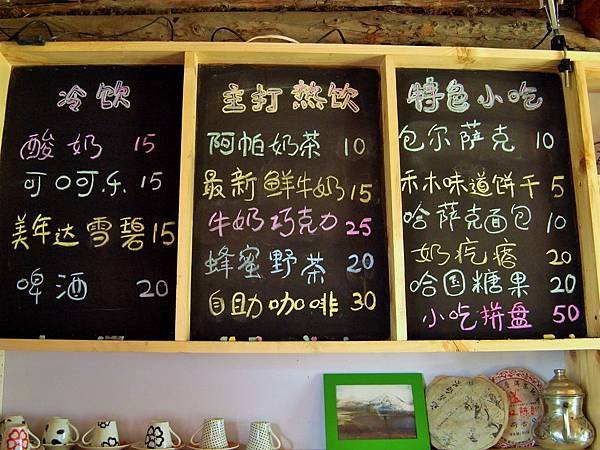 冷饮
酸奶 15
可口可乐 15
美年达雪碧 15
啤酒 20
主打热饮
阿帕奶茶 10
最新鲜牛奶 15
牛奶巧克力 25
蜂蜜野茶 20
自助咖啡 30
特色小吃
包尔萨克 10
禾木味道饼干 5
哈萨克面包 10
奶疙瘩 20
哈国糖果 20
小吃拼盘 50